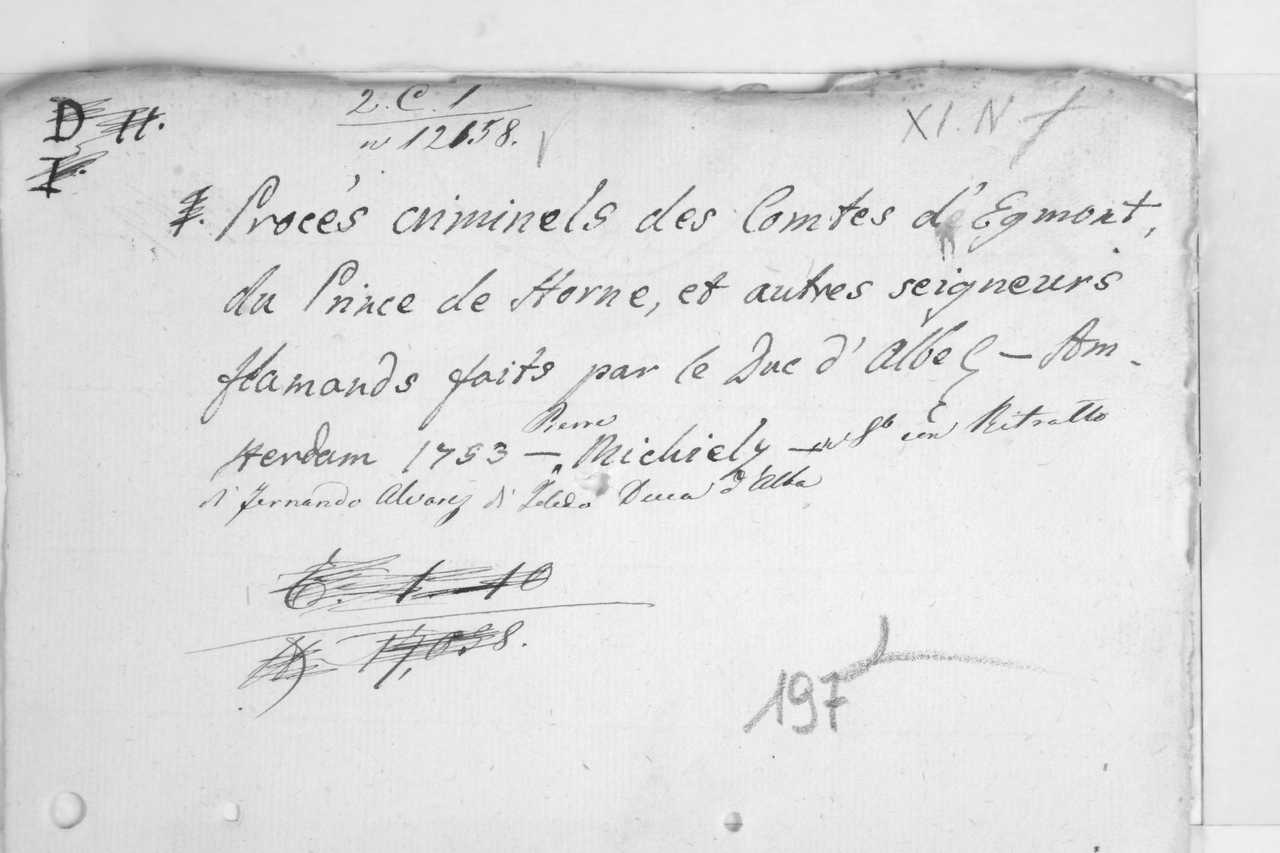 D H. 2. C. 1 XI. N
I. n 12658.
I. Procès criminels des Comtes d'Egmont,
du Prince de Horne, et autres seigneurs
flamands faits par le Duc d'Albe — Am-
Pierre
sterdam 1753 — Michiely — 8º con Ritratto
di Fernando Alvarez di Toledo Duca d'Alba
6. 1 10
17,658.
197